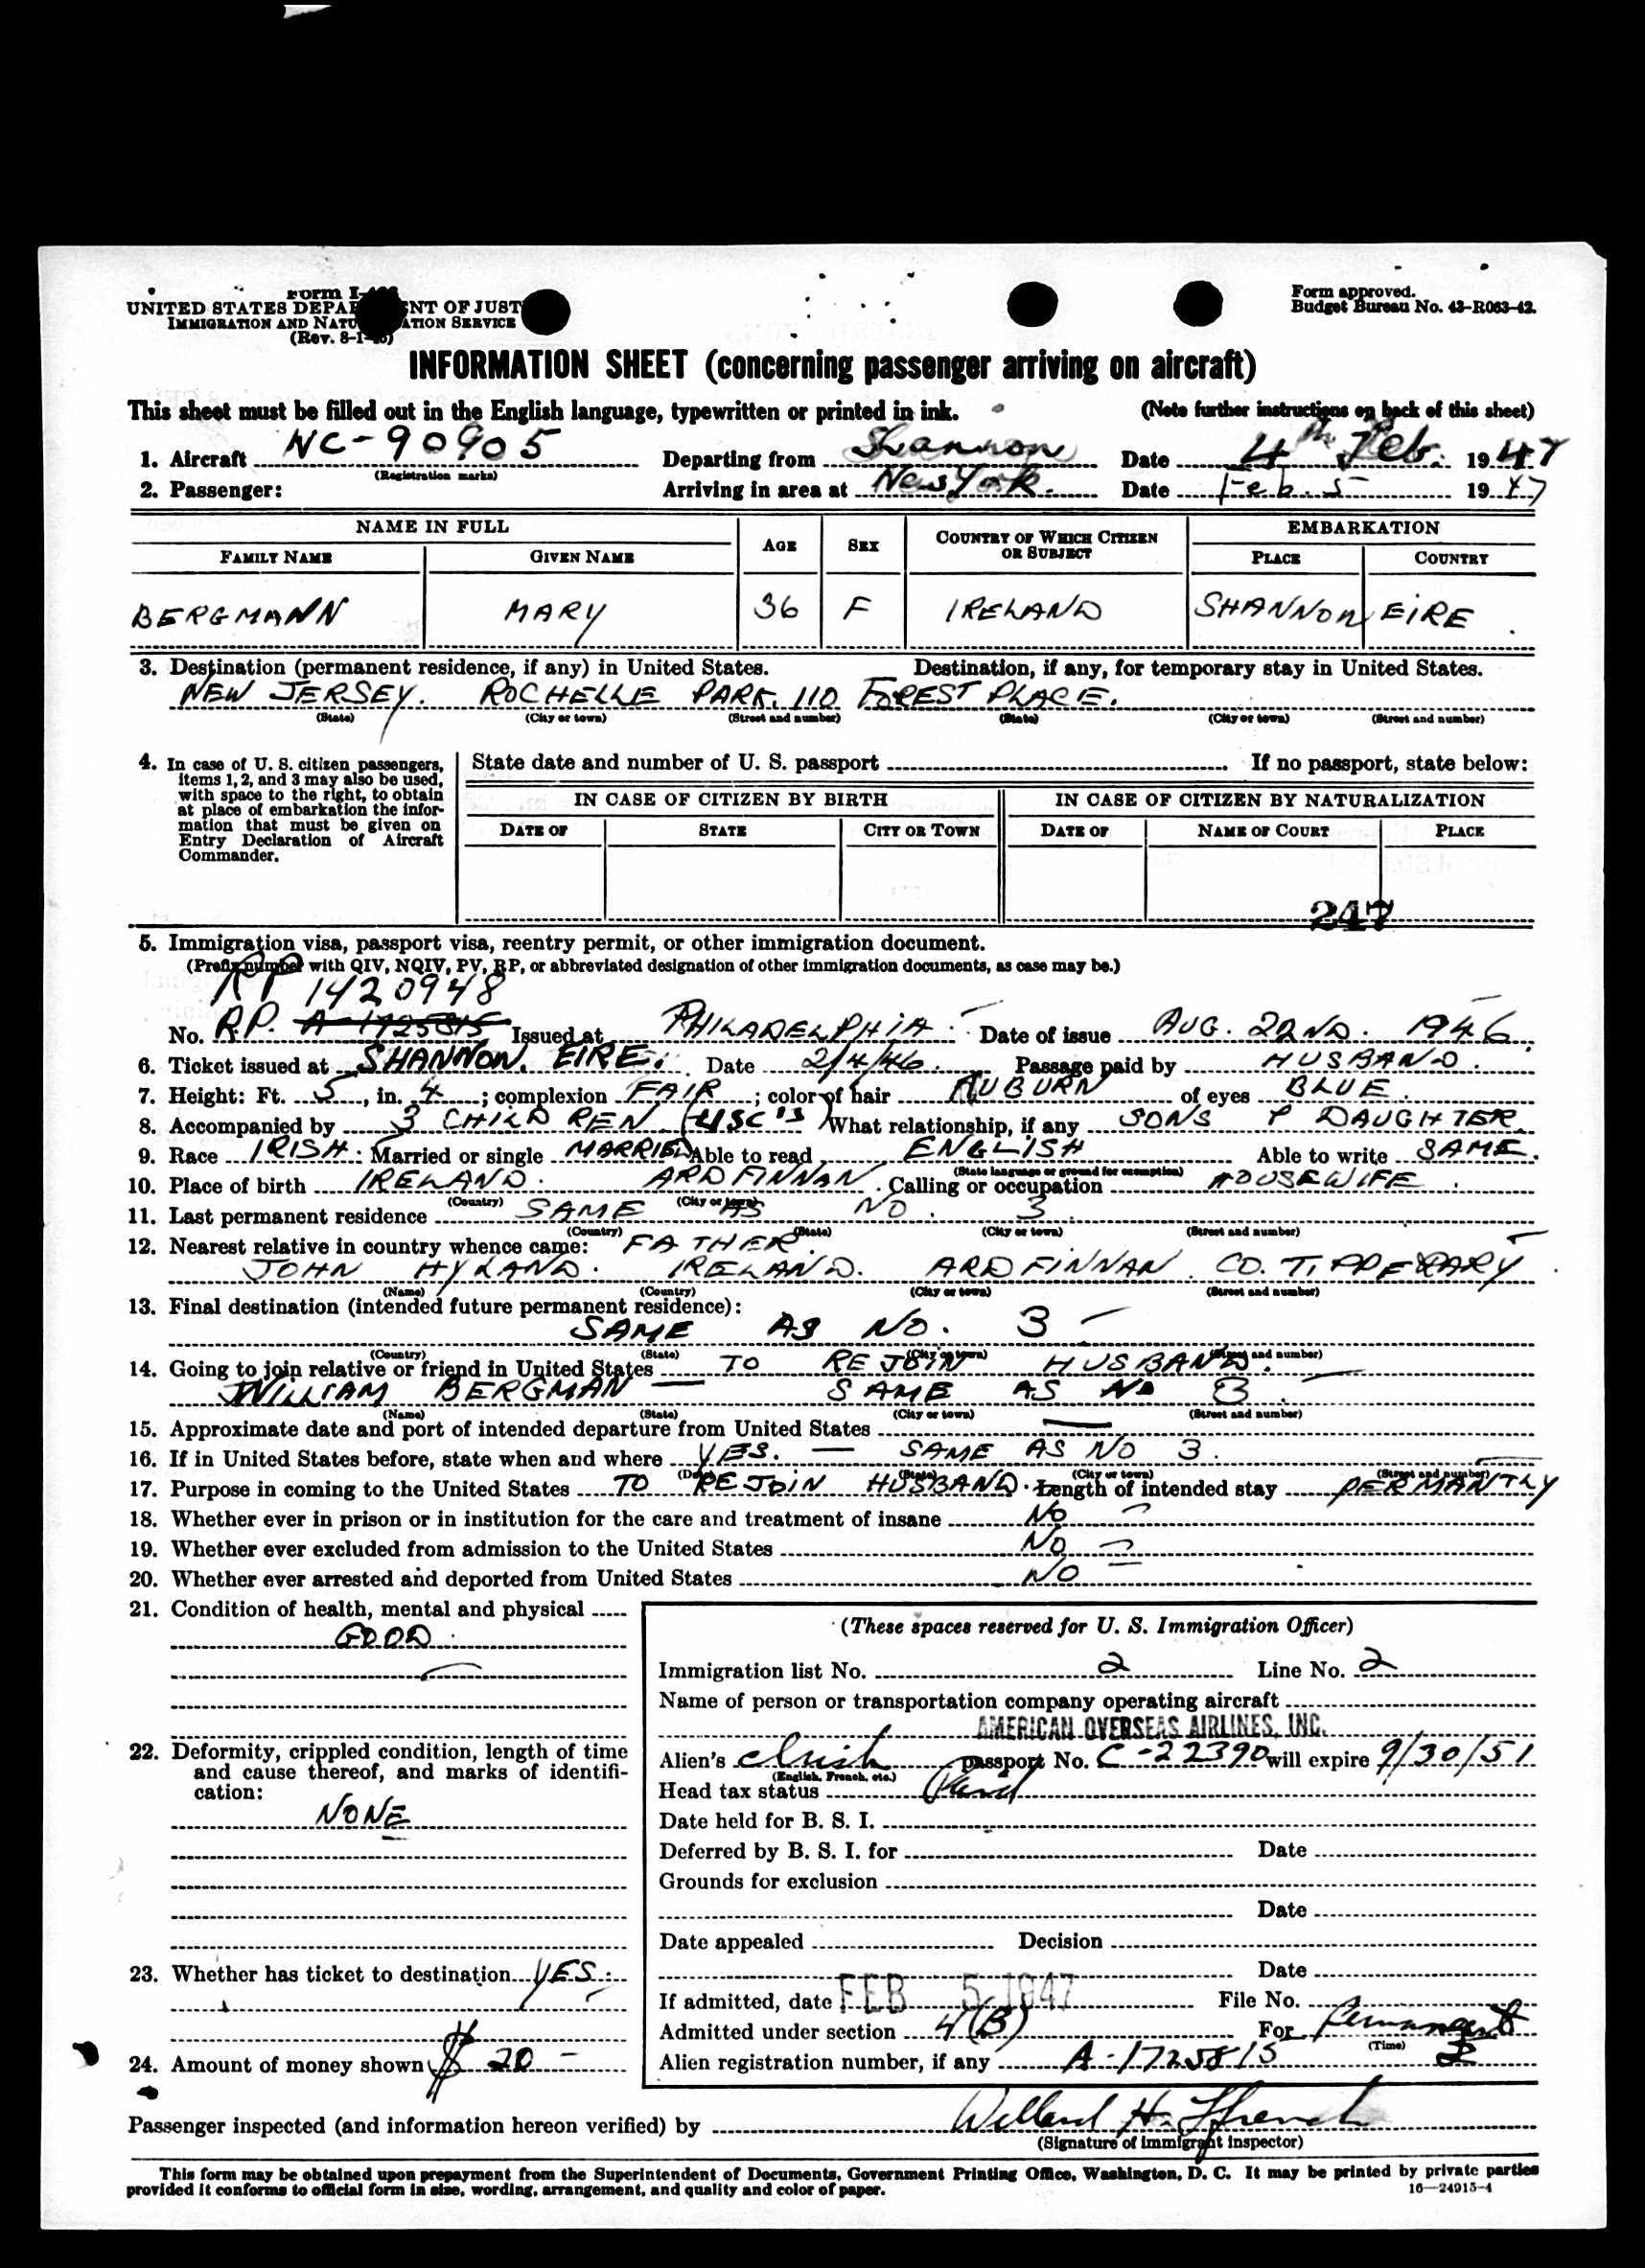 Form I-
UNITED STATES DEPA NT OF JUST
IMMIGRATION AND NATU ATION SERVICE
(Rev. 8-1- )
Form approved.
Budget Bureau No. 43-R063-42.
INFORMATION SHEET (concerning passenger arriving on aircraft)
This sheet must be filled out in the English language, typewritten or printed in ink. (Note further instructions on back of this sheet)
1. Aircraft NC-90905 Departing from Shannon Date 4th Feb. 1947
(Registration marks)
2. Passenger: Arriving in area at New York. Date Feb. 5 1947
NAME IN FULL AGE SEX COUNTRY OF WHICH CITIZEN OR SUBJECT EMBARKATION
FAMILY NAME GIVEN NAME PLACE COUNTRY
BERGMANN MARY 36 F IRELAND SHANNON EIRE
3. Destination (permanent residence, if any) in United States. Destination, if any, for temporary stay in United States.
NEW JERSEY. ROCHELLE PARK. 110 FOREST PLACE.
(State) (City or town) (Street and number) (State) (City or town) (Street and number)
4. In case of U. S. citizen passengers, items 1, 2, and 3 may also be used, with space to the right, to obtain at place of embarkation the information that must be given on Entry Declaration of Aircraft Commander.
State date and number of U. S. passport If no passport, state below:
IN CASE OF CITIZEN BY BIRTH IN CASE OF CITIZEN BY NATURALIZATION
DATE OF STATE CITY OR TOWN DATE OF NAME OF COURT PLACE
247
5. Immigration visa, passport visa, reentry permit, or other immigration document.
(Prefix number with QIV, NQIV, PV, RP, or abbreviated designation of other immigration documents, as case may be.)
RP 1420948
No. R.P. A-1725815 Issued at PHILADELPHIA. Date of issue AUG. 22ND. 1946.
6. Ticket issued at SHANNON. EIRE. Date 2/4/46. Passage paid by HUSBAND.
7. Height: Ft. 5, in. 4; complexion FAIR; color of hair AUBURN of eyes BLUE.
8. Accompanied by 3 CHILDREN (USC's) What relationship, if any SONS & DAUGHTER
9. Race IRISH: Married or single MARRIED Able to read ENGLISH Able to write SAME.
(State language or ground for exemption)
10. Place of birth IRELAND. ARDFINNAN. Calling or occupation HOUSEWIFE.
(Country) (City or town)
11. Last permanent residence SAME AS NO. 3
(Country) (State) (City or town) (Street and number)
12. Nearest relative in country whence came: FATHER.
JOHN HYLAND. IRELAND. ARDFINNAN. CO. TIPPERARY
(Name) (Country) (City or town) (Street and number)
13. Final destination (intended future permanent residence):
SAME AS NO. 3
(Country) (State) (City or town) (Street and number)
14. Going to join relative or friend in United States TO REJOIN HUSBAND.
WILLIAM BERGMAN — SAME AS NO 3.
(Name) (State) (City or town) (Street and number)
15. Approximate date and port of intended departure from United States —
16. If in United States before, state when and where YES. — SAME AS NO 3.
(Date) (State) (City or town) (Street and number)
17. Purpose in coming to the United States TO REJOIN HUSBAND. Length of intended stay PERMANTLY
18. Whether ever in prison or in institution for the care and treatment of insane NO
19. Whether ever excluded from admission to the United States NO
20. Whether ever arrested and deported from United States NO
21. Condition of health, mental and physical
GOOD.
22. Deformity, crippled condition, length of time and cause thereof, and marks of identification:
NONE
23. Whether has ticket to destination YES.
24. Amount of money shown $20 -
(These spaces reserved for U. S. Immigration Officer)
Immigration list No. 2 Line No. 2
Name of person or transportation company operating aircraft
AMERICAN OVERSEAS AIRLINES, INC.
Alien's Irish passport No. C-22390 will expire 9/30/51
(English, French, etc.)
Head tax status Paid
Date held for B. S. I.
Deferred by B. S. I. for Date
Grounds for exclusion
Date
Date appealed Decision
Date
If admitted, date FEB 5 1947 File No.
Admitted under section 4(B) For Permanent
(Time)
Alien registration number, if any A-1725815
Passenger inspected (and information hereon verified) by Willard H.
(Signature of immigrant inspector)
This form may be obtained upon prepayment from the Superintendent of Documents, Government Printing Office, Washington, D. C. It may be printed by private parties
provided it conforms to official form in size, wording, arrangement, and quality and color of paper. 16—24915-4